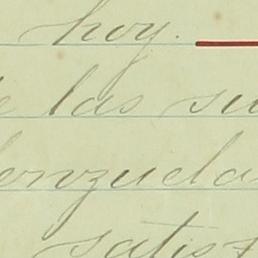 hoy.
las su
enzuela
satisf